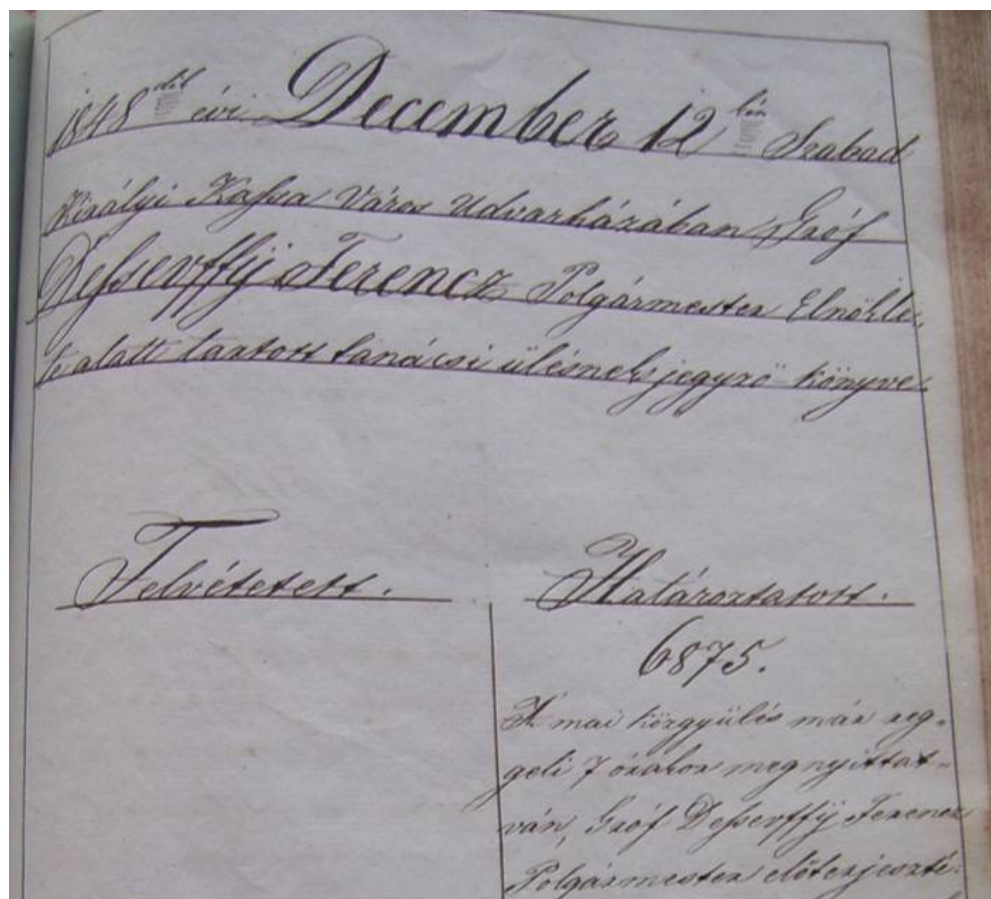 1848dik évi December 12kén Szabad
Királyi Kassa Város Udvarházában Gróf
Dessewffÿ Ferencz Polgármester Elnökle,
te alatt tartott tanácsi ülésnek jegyző könyve.
Felvétetett.
Határoztatott.
6875.
A mai közgyülés már reg„
geli 7 órakor megnyittat„
ván, Gróf Dessewffÿ Ferencz
Polgármester előterjeszté„